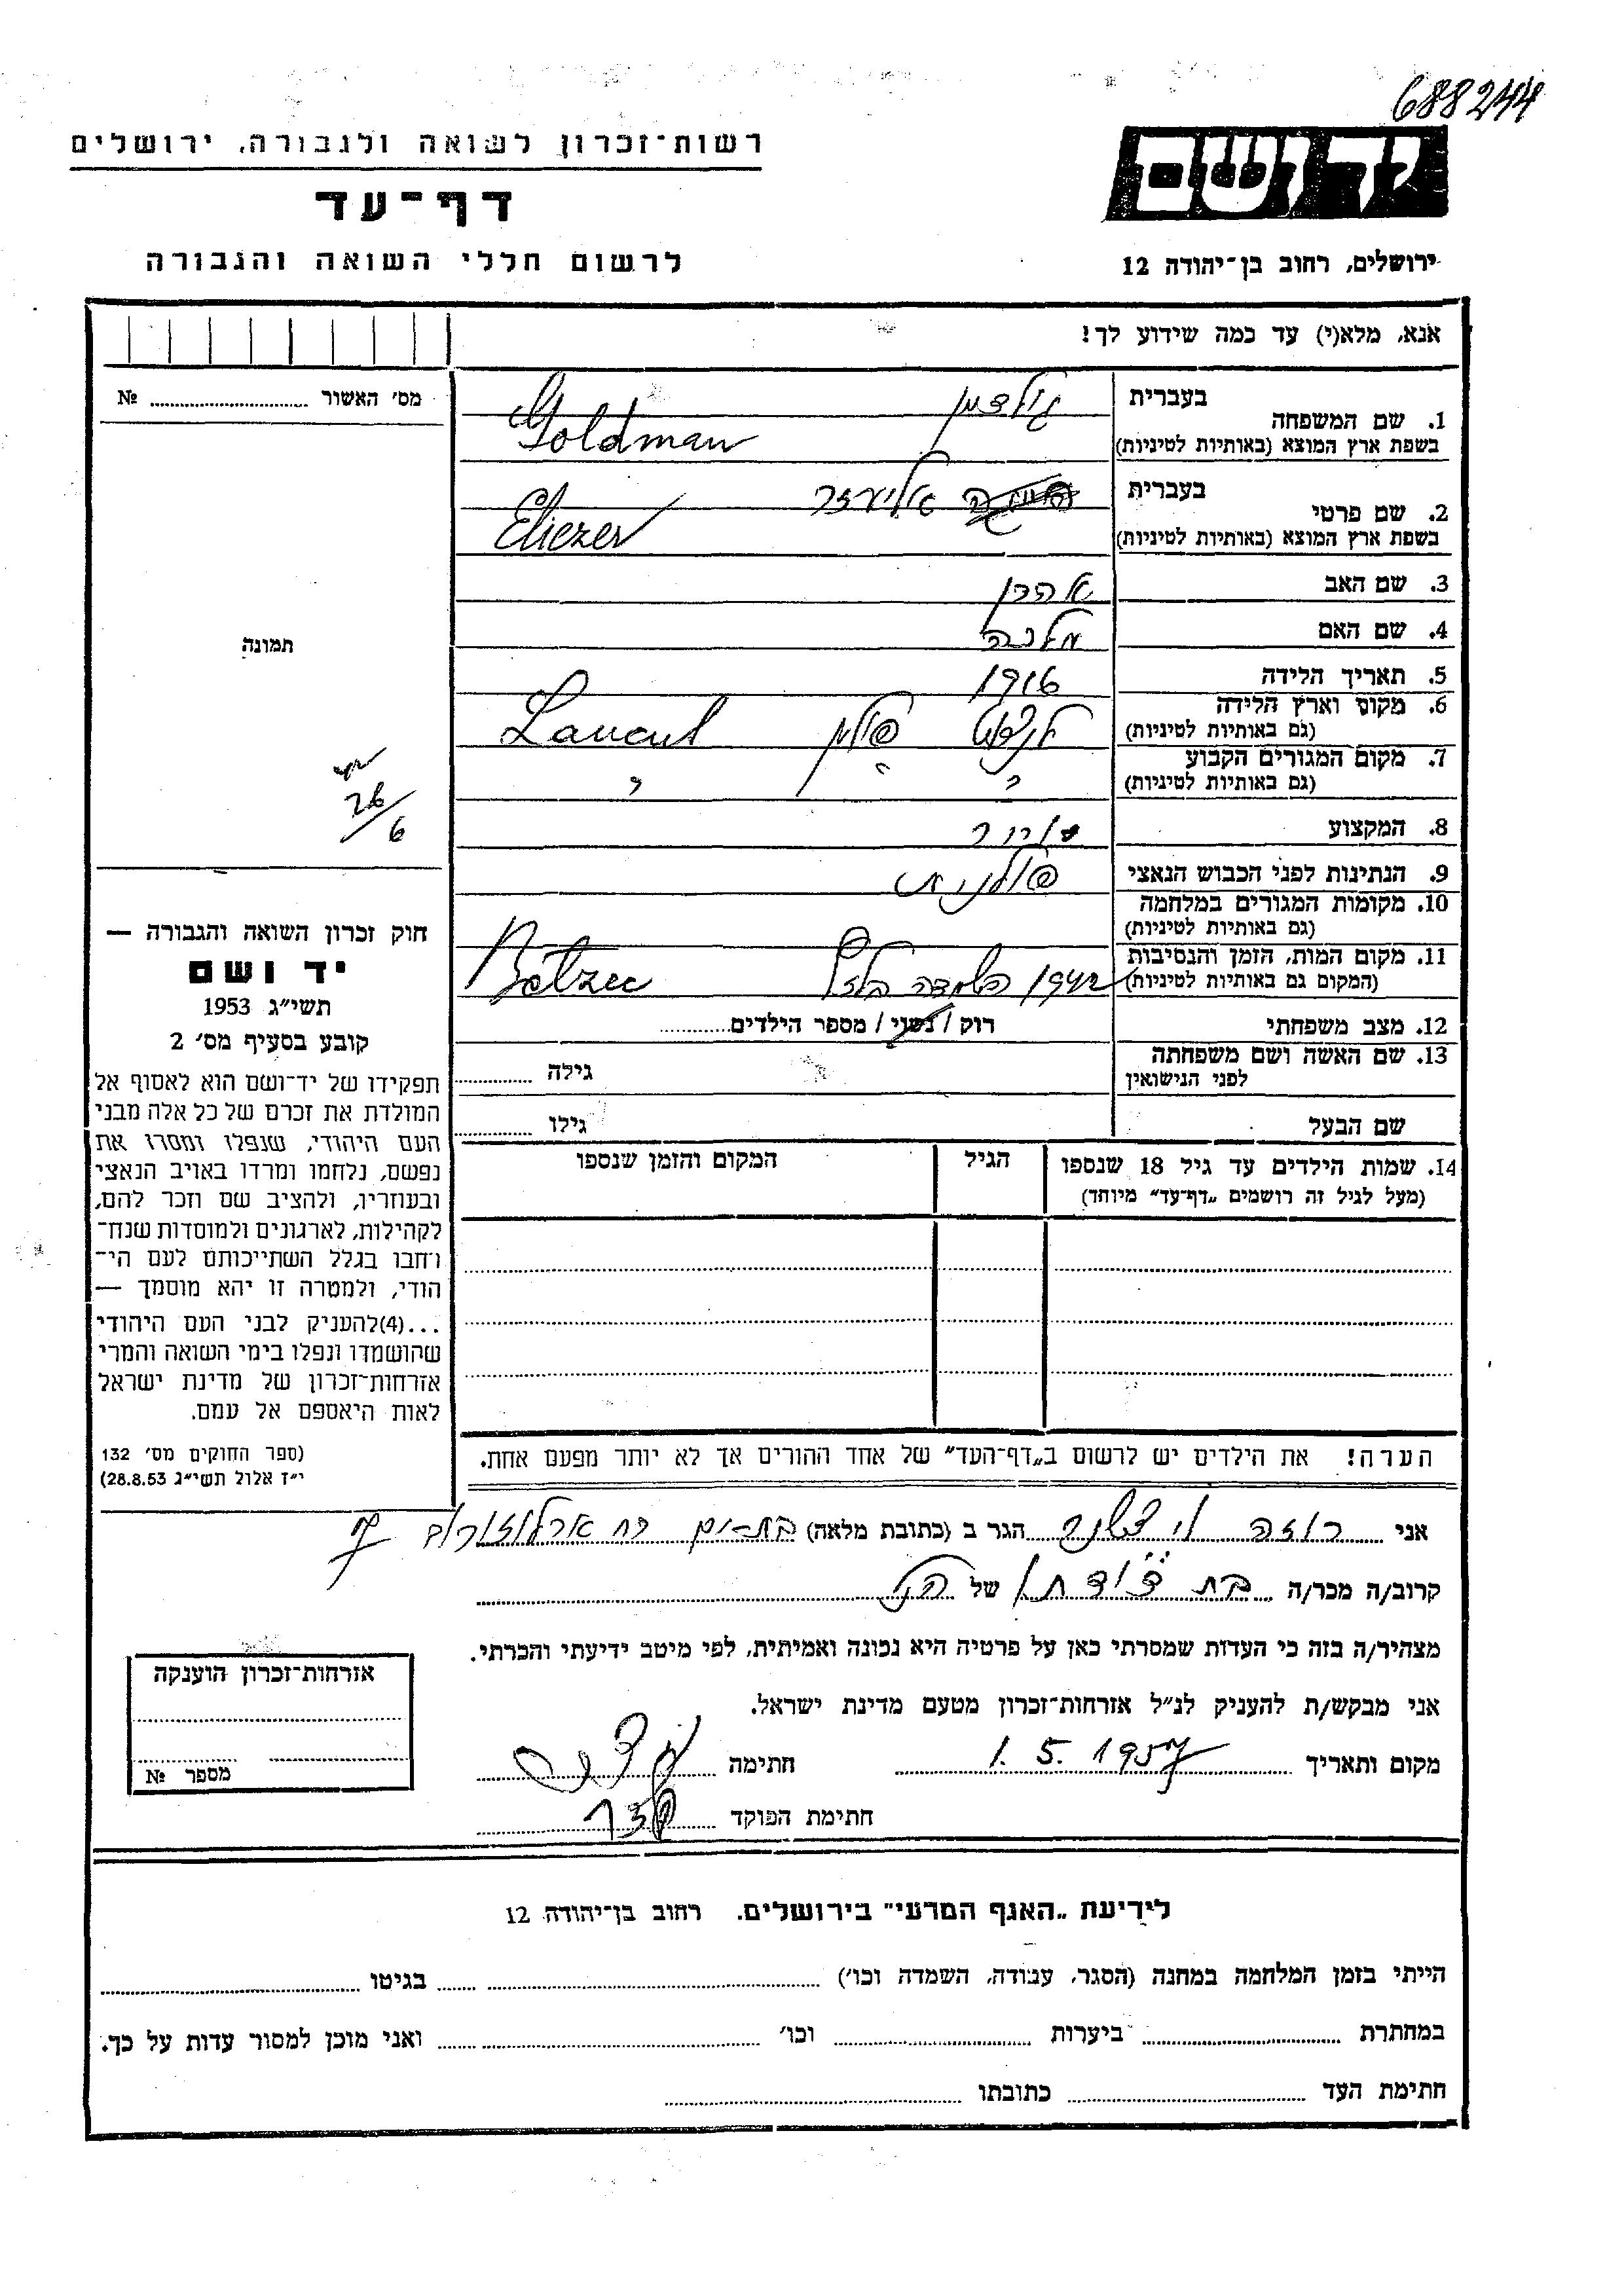 688244
רשות־זכרון לשואה ולגבורה, ירושלים
ידושם
דף־עד
לרשום חללי השואה והגבורה
ירושלים, רחוב בן־יהודה 12
אנא, מלא(י) עד כמה שידוע לך!
מס׳ האשור .......... №
תמונה
26/6
1. שם המשפחה
בעברית גולדמן
בשפת ארץ המוצא (באותיות לטיניות) Goldman
2. שם פרטי
בעברית אליעזר
בשפת ארץ המוצא (באותיות לטיניות) Eliezer
3. שם האב אהרן
4. שם האם מלכה
5. תאריך הלידה 1916
6. מקום וארץ הלידה
(גם באותיות לטיניות) לנצוט פולין Lancut
7. מקום המגורים הקבוע
(גם באותיות לטיניות) " " "
8. המקצוע
9. הנתינות לפני הכבוש הנאצי פולנית
10. מקומות המגורים במלחמה
(גם באותיות לטיניות)
11. מקום המות, הזמן והנסיבות
(המקום גם באותיות לטיניות) 1942 השמדה בלזץ Betzec
12. מצב משפחתי רוק / נשוי / מספר הילדים..........
13. שם האשה ושם משפחתה
לפני הנישואין גילה ..........
שם הבעל גילו ..........
14. שמות הילדים עד גיל 18 שנספו הגיל המקום והזמן שנספו
(מעל לגיל זה רושמים „דף־עד״ מיוחד)
חוק זכרון השואה והגבורה —
יד ושם
תשי״ג 1953
קובע בסעיף מס׳ 2
תפקידו של יד־ושם הוא לאסוף אל
המולדת את זכרם של כל אלה מבני
העם היהודי, שנפלו ומסרו את
נפשם, נלחמו ומרדו באויב הנאצי
ובעוזריו, ולהציב שם וזכר להם,
לקהילות, לארגונים ולמוסדות שנח־
רבו בגלל השתייכותם לעם הי־
הודי, ולמטרה זו יהא מוסמך —
...(4)להעניק לבני העם היהודי
שהושמדו ונפלו בימי השואה והמרי
אזרחות־זכרון של מדינת ישראל
לאות היאספם אל עמם.
(ספר החוקים מס׳ 132
י״ז אלול תשי״ג 28.8.53)
הערה! את הילדים יש לרשום ב„דף־העד״ של אחד ההורים אך לא יותר מפעם אחת.
אני רוזה הגר ב (כתובת מלאה) בת־ים רח ארלוזורוב
קרוב/ה מכר/ה בת דודתו של הנ"ל
מצהיר/ה בזה כי העדות שמסרתי כאן על פרטיה היא נכונה ואמיתית, לפי מיטב ידיעתי והכרתי.
אני מבקש/ת להעניק לנ״ל אזרחות־זכרון מטעם מדינת ישראל.
מקום ותאריך 1.5.1957 חתימה
חתימת הפוקד
אזרחות־זכרון הוענקה
מספר №
לידיעת „האגף המדעי״ בירושלים. רחוב בן־יהודה 12
הייתי בזמן המלחמה במחנה (הסגר, עבודה, השמדה וכו׳) .......... בגיטו ..........
במחתרת .......... ביערות .......... וכו׳ .......... ואני מוכן למסור עדות על כך.
חתימת העד .......... כתובתו ..........